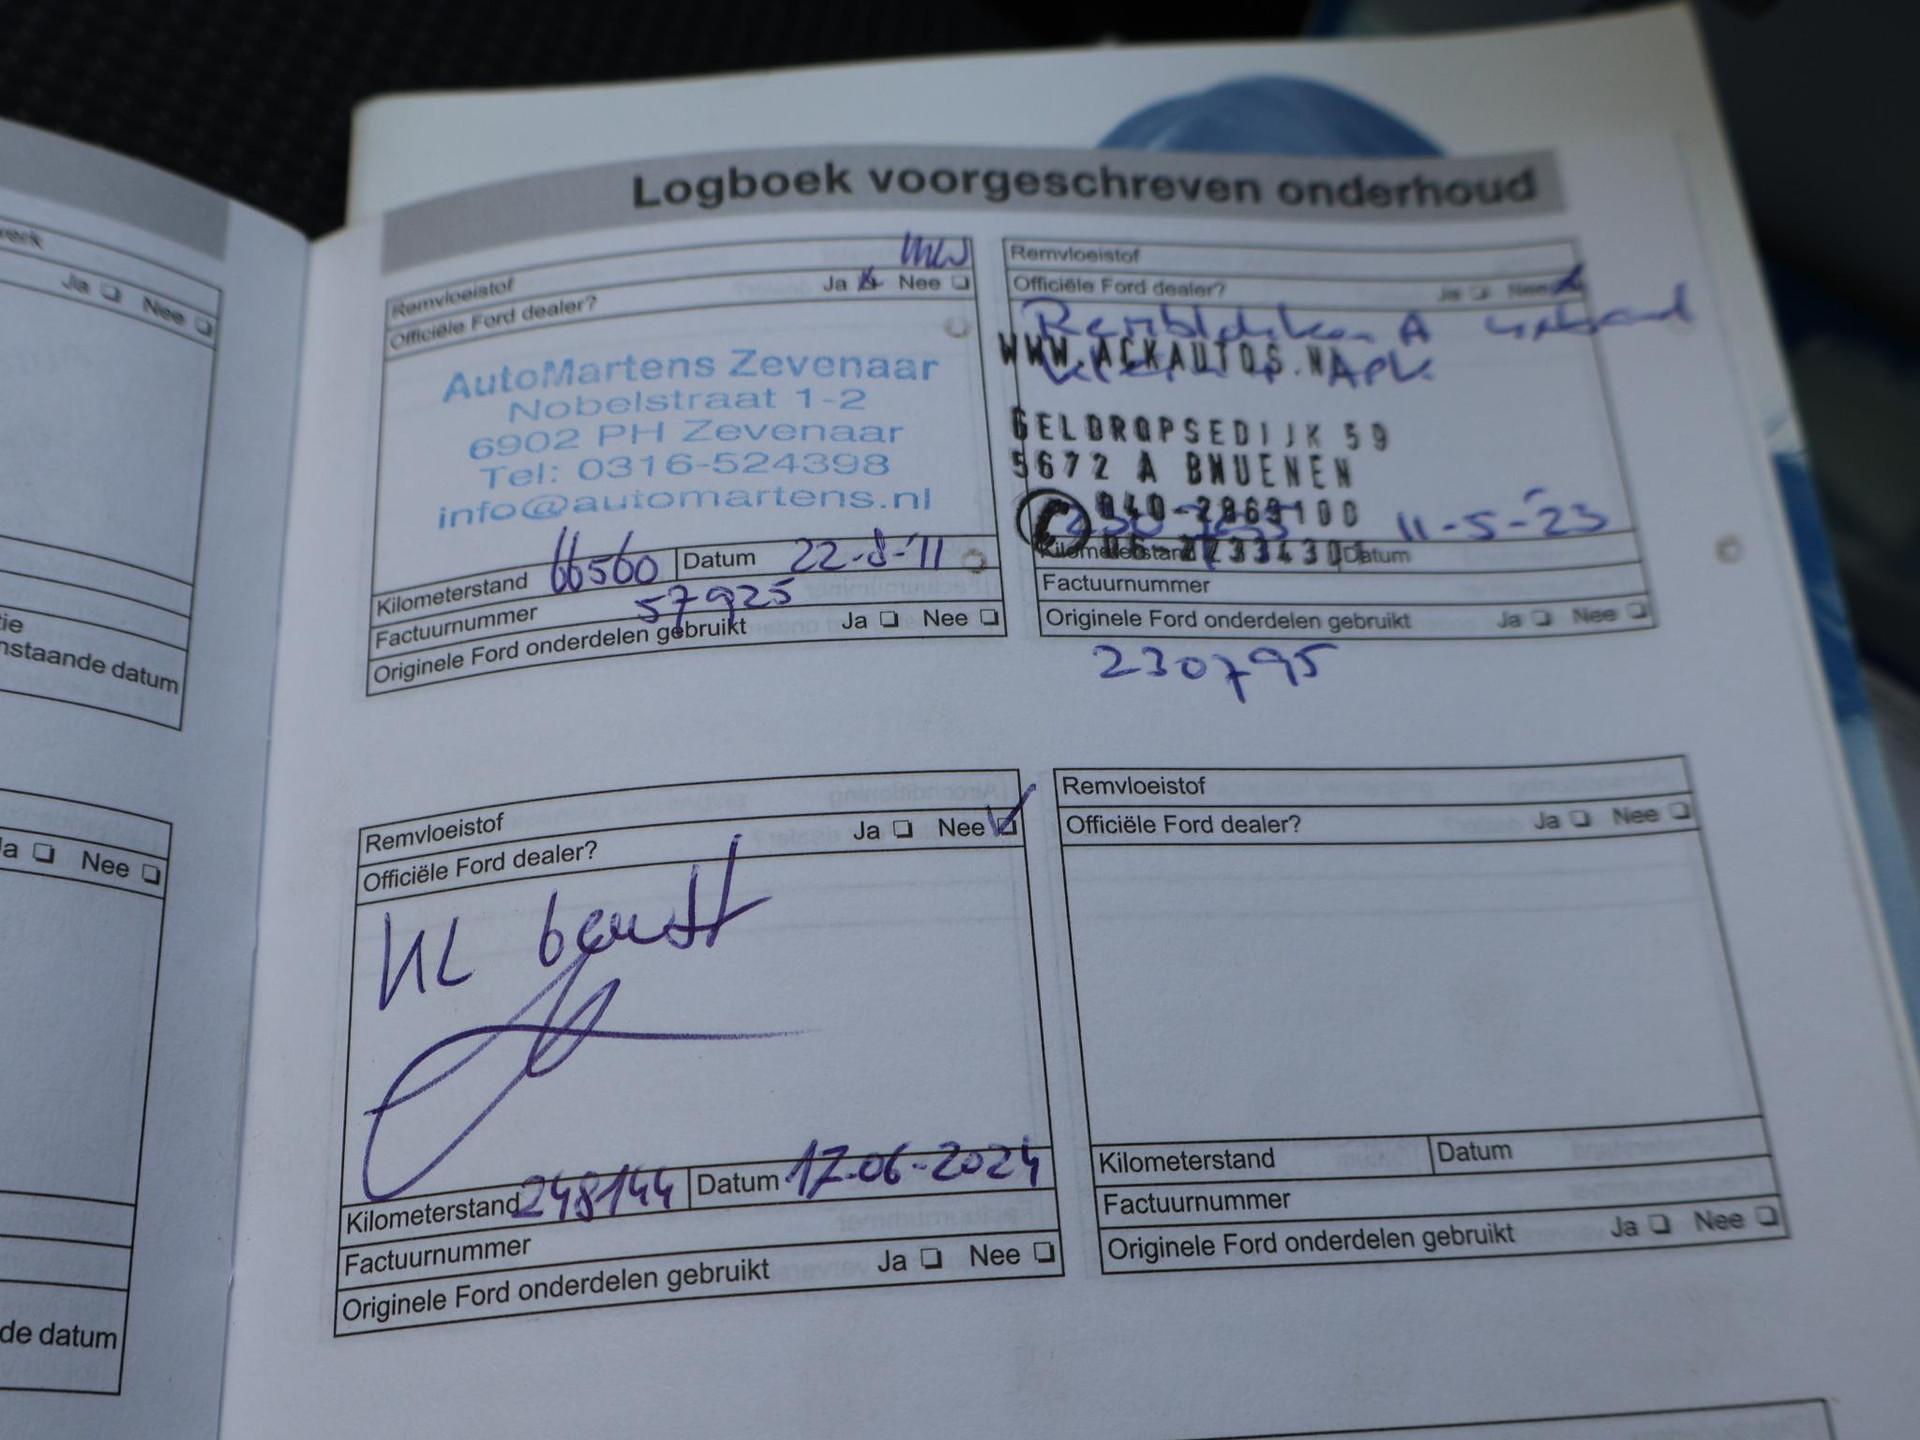 Logboek voorgeschreven onderhoud
Remvloeistof
Officiële Ford dealer? Ja Nee
AutoMartens Zevenaar
Nobelstraat 1-2
6902 PH Zevenaar
Tel: 0316-524398
info@automartens.nl
Kilometerstand 66560 Datum 22-8-'11
Factuurnummer 57925
Originele Ford onderdelen gebruikt Ja Nee
Remvloeistof
Officiële Ford dealer? Ja Nee
WWW.ACKAUTOS.N
APK
GELDROPSEDIJK 59
5672 A
11-5-23
Kilometerstand Datum
Factuurnummer
Originele Ford onderdelen gebruikt Ja Nee
230795
Remvloeistof
Officiële Ford dealer? Ja Nee
Kilometerstand 248144 Datum 17-06-2024
Factuurnummer
Originele Ford onderdelen gebruikt Ja Nee
Remvloeistof
Officiële Ford dealer? Ja Nee
Kilometerstand Datum
Factuurnummer
Originele Ford onderdelen gebruikt Ja Nee
Ja Nee
nstaande datum
Ja Nee
de datum